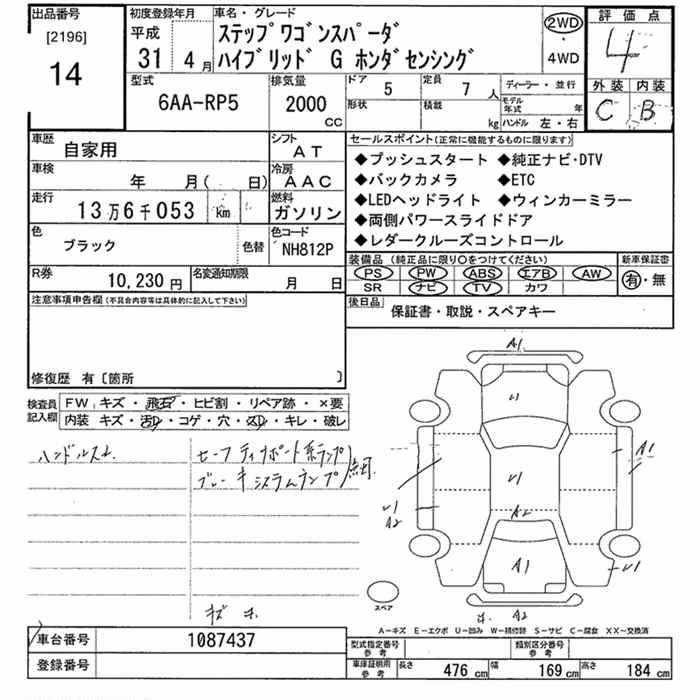 出品番号
[2196]
14
初度登録年月
平成
31 4月
車名・グレード
ステップワゴンスパーダ
ハイブリッド G ホンダセンシング
2WD
・
4WD
評価点
4
外装 内装
C B
型式
6AA-RP5
排気量
2000
CC
ドア 5
定員 7 人
形状
積載 kg
ディーラー・並行
モデル年式 年
ハンドル 左・右
車歴
自家用
シフト
AT
車検
年 月( 日)
冷房
AAC
走行
13万6千053 km
燃料
ガソリン
色
ブラック
色替
色コード
NH812P
R券
10,230円
名変通知期限
月 日
セールスポイント(正常に機能するものに限ります)
◆プッシュスタート ◆純正ナビ・DTV
◆バックカメラ ◆ETC
◆LEDヘッドライト ◆ウィンカーミラー
◆両側パワースライドドア
◆レダークルーズコントロール
装備品 (純正品に限り○をつけてください)
PS PW ABS エアB AW
SR ナビ TV カワ
新車保証書
有・無
後日品
保証書・取説・スペアキー
注意事項申告欄(不具合内容等は具体的に記入して下さい)
修復歴 有〔箇所 〕
検査員記入欄
FW キズ・飛石・ヒビ割・リペア跡・×要
内装 キズ・汚レ・コゲ・穴・スレ・キレ・破レ
ハンドルスレ
ブレーキシステムランプ
A1
U1
A1
U1
U1
A2
A2
A1
U1
A2
スペア
A―キズ E―エクボ U―凹み W―補修跡 S―サビ C―腐食 XX～交換済
車台番号
1087437
登録番号
型式指定番号
参考
類別区分番号
参考
車庫証明用
参考
長さ 476 cm 幅 169 cm 高さ 184 cm